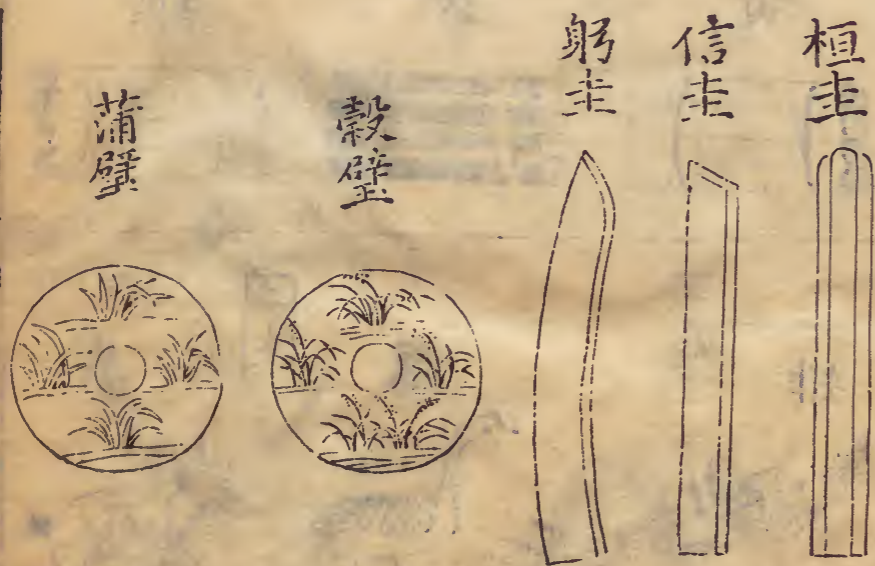 桓圭
信圭
躬圭
穀璧
蒲璧